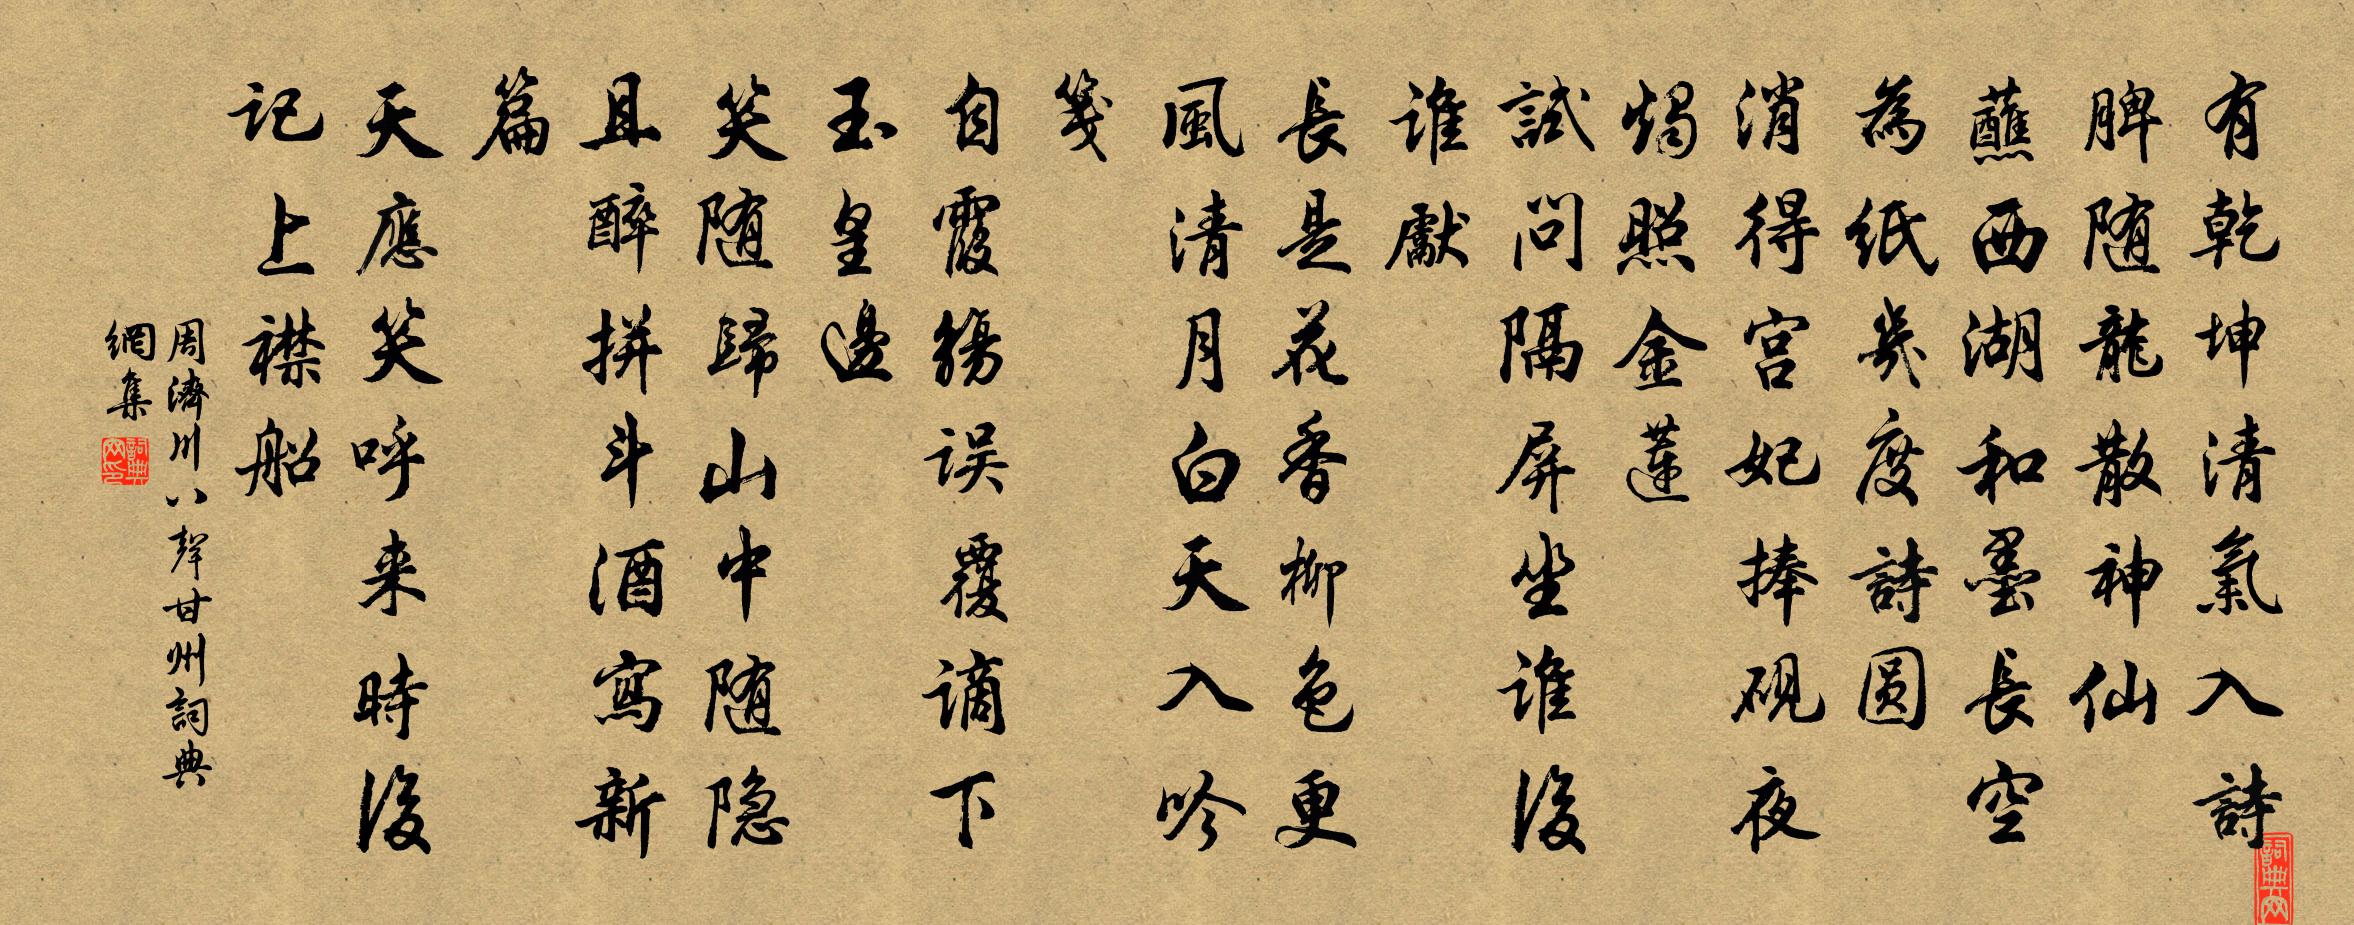 有乾坤清氣入詩
脾随龍散神仙
蘸西湖和墨長空
為紙幾度詩圆
消得宫妃捧砚夜
燭照金蓮
試問隔屏坐誰後
誰獻
長是花香柳色更
風清月白天入吟
箋
自霞觴误覆谪下
玉皇邊
笑随歸山中随隐
且醉拼斗酒寫新
篇
天應笑呼来時後
记上襟船
周濟川八聲甘州詞典
網集
詞典网
詞典网